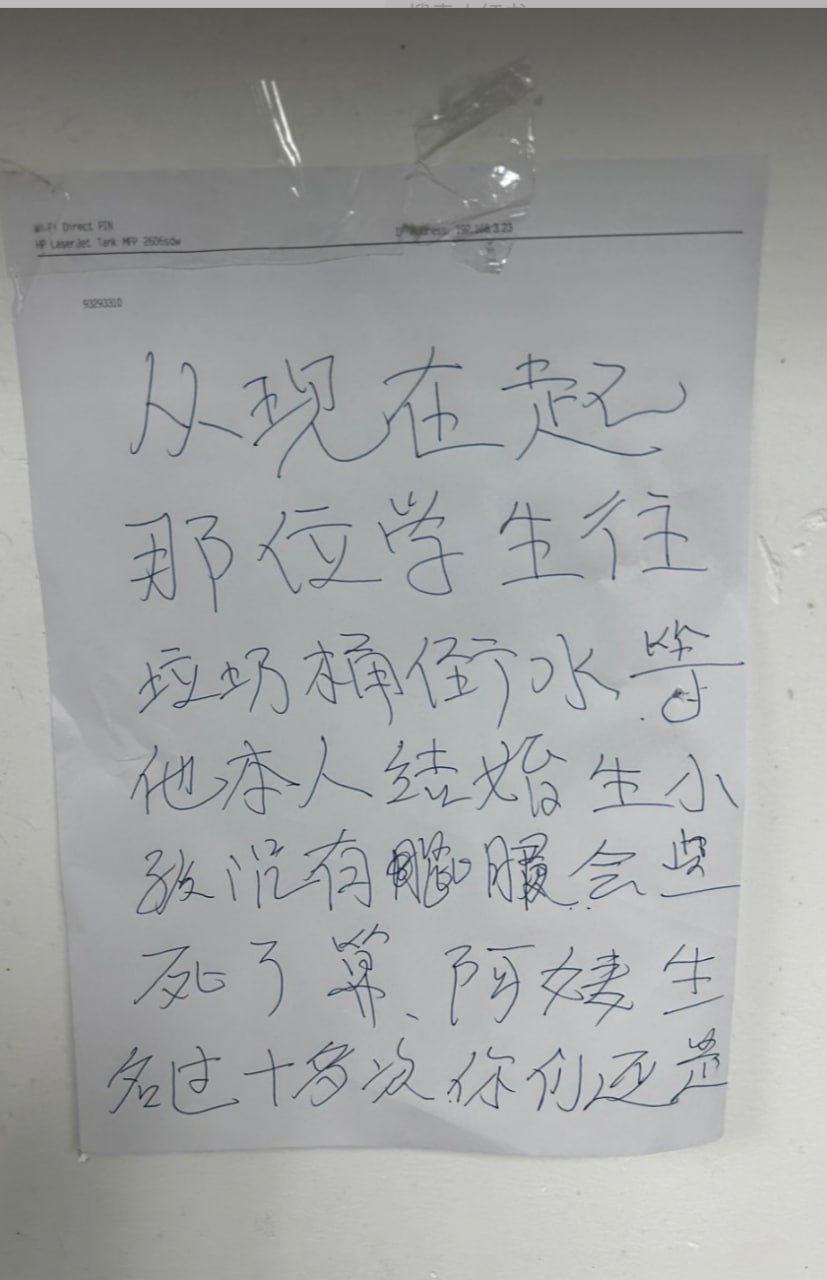 Wi-Fi Direct PIN
HP LaserJet Tank MFP 2606sdw
IP Address: 192.168.3.23
93293310
从现在起
那位学生往
垃圾桶倒水等
他本人结婚生小
孩没有腚眼会些
死了算、阿姨生
名过十多次你们还是